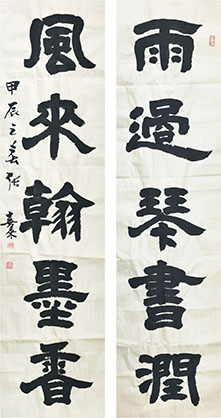 雨過琴書潤
風來翰墨香
甲辰之春 張